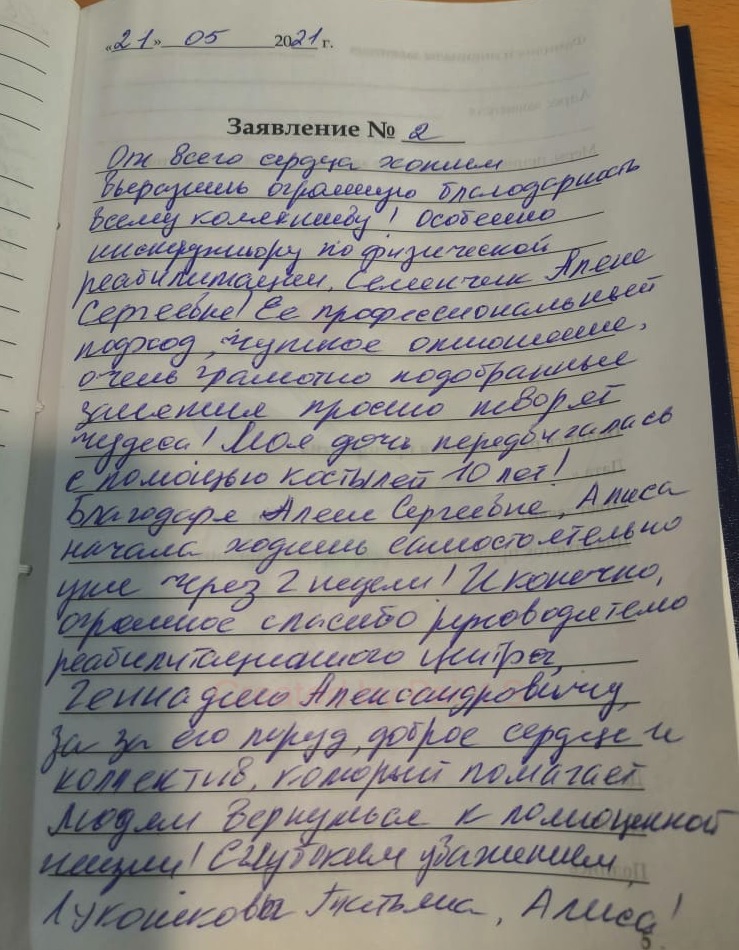 «21» 05 2021 г.
Заявление № 2
От всего сердца хотим
выразить огромную благодарность
всему коллективу! Особенно
инструктору по физической
реабилитации, Семенчик Алене
Сергеевне! Ее профессиональный
подход, чуткое отношение,
очень грамотно подобранные
занятия просто творят
чудеса! Моя дочь передвигалась
с помощью костылей 10 лет!
Благодаря Алене Сергеевне, Алиса
начала ходить самостоятельно
уже через 2 недели! И конечно,
огромное спасибо руководителю
реабилитационного центра,
Геннадию Александровичу,
за за его труд, доброе сердце и
коллектив, который помагает
людям вернуться к полноценной
жизни! С глубоким уважением,
Татьяна, Алиса!
5